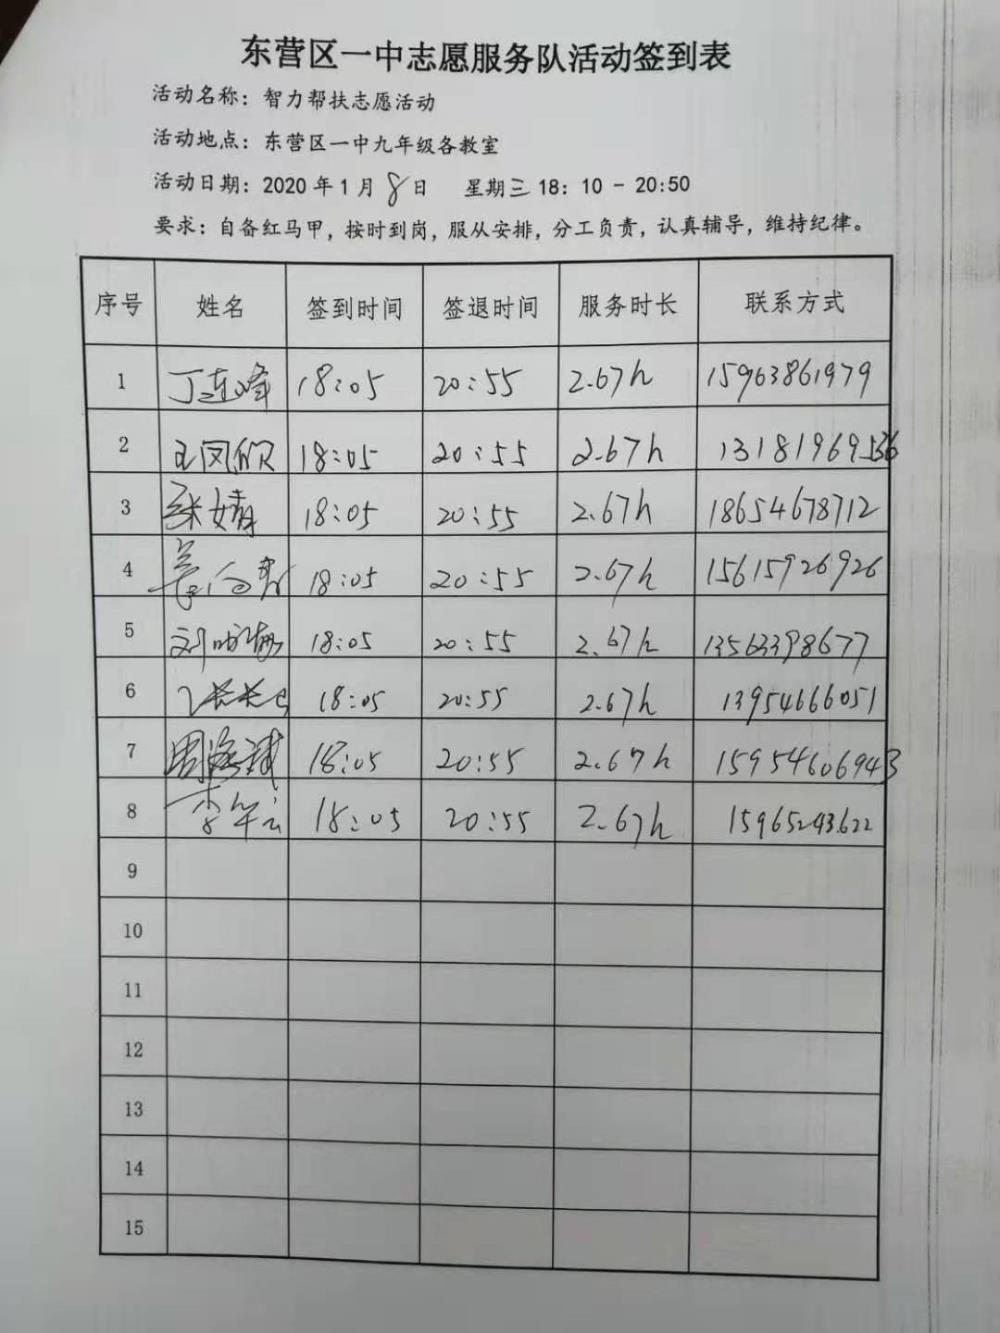 东营区一中志愿服务队活动签到表
活动名称：智力帮扶志愿活动
活动地点：东营区一中九年级各教室
活动日期：2020 年 1 月 8 日 星期三 18：10 - 20:50
要求：自备红马甲，按时到岗，服从安排，分工负责，认真辅导，维持纪律。
序号 姓名 签到时间 签退时间 服务时长 联系方式
1 丁连峰 18:05 20:55 2.67h 15963861979
2 王凤欣 18:05 20:55 2.67h 13181969536
3 张婧 18:05 20:55 2.67h 18654678712
4 18:05 20:55 2.67h 15615926926
5 18:05 20:55 2.67h 13563398677
6 18:05 20:55 2.67h 13954666051
7 周海斌 18:05 20:55 2.67h 15954606943
8 18:05 20:55 2.67h 15965243622
9
10
11
12
13
14
15